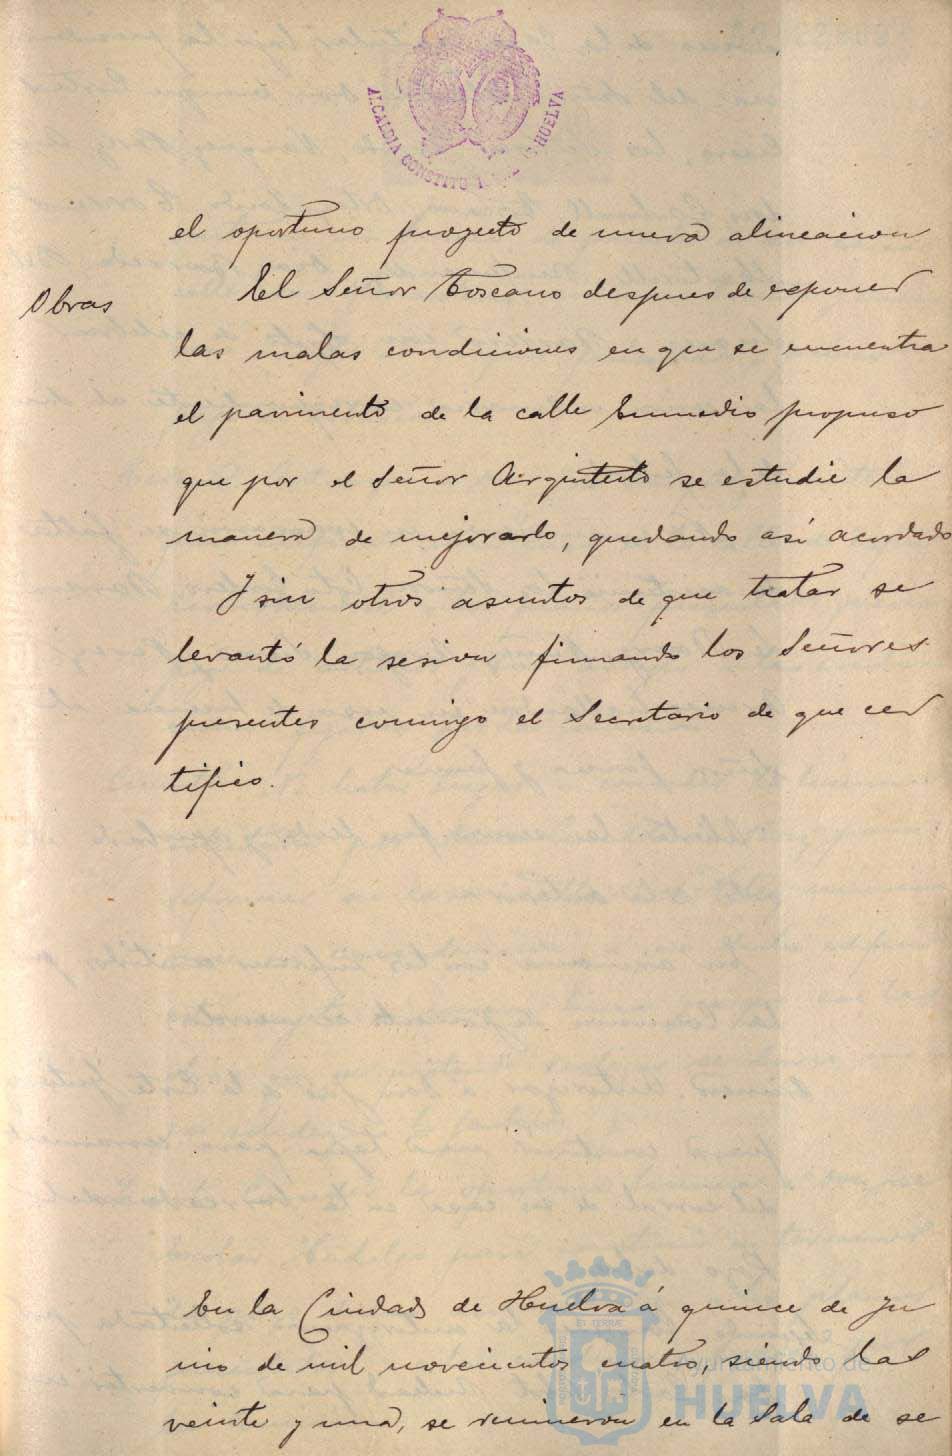 ALCALDIA CONSTITU HUELVA
el oportuno proyecto de nueva alineacion
Obras
El Señor Toscano despues de exponer
las malas condiciones en que se encuentra
el pavimento de la calle Enmedio propuso
que por el Señor Arquitecto se estudie la
manera de mejorarlo, quedando así acordado
Y sin otros asuntos de que tratar se
levantó la sesion firmando los Señores
presentes conmigo el Secretario de que cer
tifico.
En la Ciudad de Huelva á quince de Ju
nio de mil novecientos cuatro, siendo las
veinte y una, se reunieron en la Sala de se
Ayuntamiento de
HUELVA